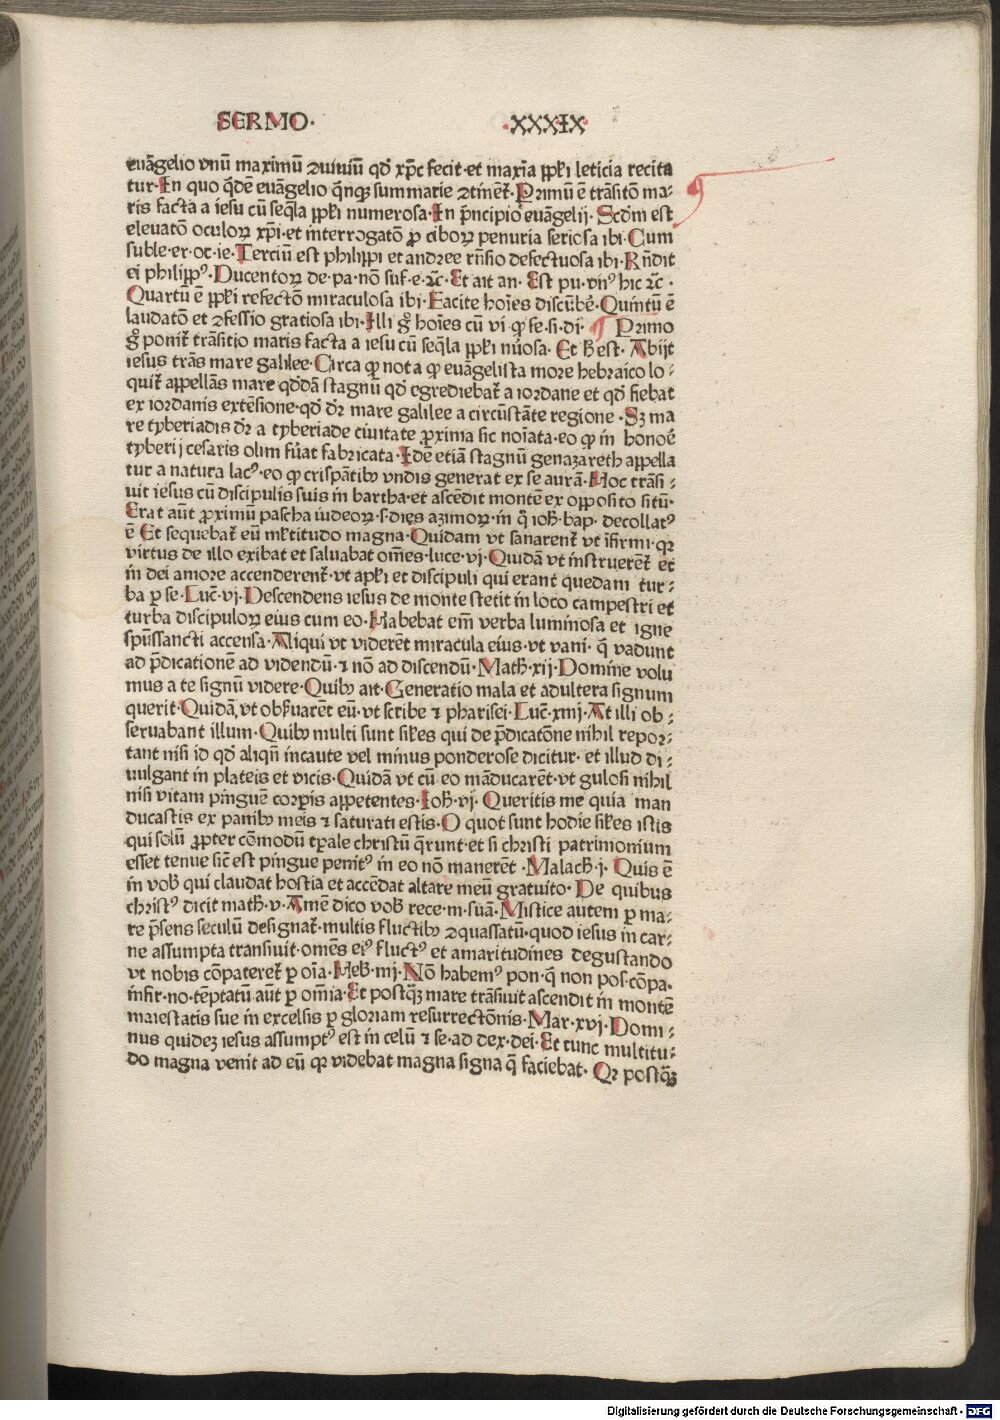 SERMO· ·XXXIX·
euāgelio vnū maximū ꝯuiuiū qđ xp̄c fecit·et maxīa ꝓpl̓i leticia recita
tur·In quo q̄dē euāgelio q̄nqꝫ summarie ꝯtinet̄·Primū ē trāsitō ma⸗
ris facta a iesu cū seq̄la ꝓpl̓i numerosa·In p̄ncipio euāgelij·Scd̄m est
eleuatō oculoꝝ xp̄i·et interrogatō ꝓ ciboꝝ penuria seriosa ibi·Cum
suble·er·oc·ie·Terciū est philippi et andree rn̄sio defectuosa ibi·Rn̄dit
ei philippꝰ·Ducentoꝝ de·pa·nō suf·e·ꝛc̄·Et ait an·Est pu·vnꝰ hic ꝛc̄·
Quartū ē ꝓpl̓i refectō miraculosa ibi·Facite hoīes discūbe᷑·Quintū ē
laudatō et ꝯfessio gratiosa ibi·Illi g̊ hoīes cū vi ꝙ se·si·di· ¶ Primo
g̊ ponit̄ trāsitio maris facta a iesu cū seq̄la ꝓpl̓i nūosa· Et h̄ est· Abijt
iesus trās mare galilee·Circa ꝙ nota ꝙ euāgelista more hebraico lo⸗
quit̄ appellās mare qđdā stagnū qđ egrediebat̄ a iordane et qđ fiebat
ex iordanis extēsione·qđ dr̄ mare galilee a circūstāte regione·Sꝫ ma
re tyberiadis dr̄ a tyberiade ciuitate ꝓxima sic noīata·eo ꝙ in honoē
tyberij cesaris olim fūat fabricata·Idē etiā stagnū genazareth appella
tur a natura lacꝰ·eo ꝙ crispātibꝰ vndis generat ex se aurā·Hoc trāsi⸗
uit iesus cū discipulis suis in bartha·et ascēdit montē ex opposito sitū·
Erat aūt ꝓximū pascha iudeoꝝ·s·dies azimoꝝ·in q̊ ioh̄·bap· decollatꝰ
ē Et sequebat̄ eū ml̓titudo magna·Quidam vt sanarent̄ vt īfirmi·qꝛ
virtus de illo exibat et saluabat om̄es·luce·vj·Quidā vt instruerēt̄ et
in dei amore accenderent̄·vt apl̓i et discipuli qui erant quedam tur⸗
ba ꝑ se·Luc̄·vj·Descendens iesus de monte stetit in loco campestri et
turba discipuloꝝ eius cum eo·Habebat em̄ verba luminosa et igne
spūssancti accensa·Aliqui vt viderēt miracula eius·vt vani· q̄ vadunt
ad p̄dicationē ad videndū·⁊ nō ad discendū·Math̄·xij·Domine volu
mus a te signū videre·Quibꝰ ait·Generatio mala et adultera signum
querit·Quidā vt obẜuarēt eū·vt scribe ⁊ pharisei·Luc̄·xiiij·At illi ob⸗
seruabant illum·Quibꝰ multi sunt sil̓es qui de p̄dicatōne nihil repor⸗
tant nisi id qđ aliqn̄ incaute vel minus ponderose dicitur· et illud di⸗
uulgant in plateis et vicis·Quidā vt cū eo māducarēt·vt gulosi nihil
nisi vitam pinguē corꝑis appetentes·Ioh̄·vj· Queritis me quia man
ducastis ex panibꝰ meis ⁊ saturati estis·O quot sunt hodie sil̓es istis
qui solū ꝓpter cōmodū tꝑale christū q̄runt·et si christi patrimonium
esset tenue sic̄ est pingue penitꝰ in eo nō manerēt·Malach̄·j· Quis ē
in vob̄ qui claudat hostia et accēdat altare meū gratuito· De quibus
christꝰ dicit math̄·v·Amē dico vob̄ rece·m·suā·Mistice autem ꝑ ma⸗
re p̄sens seculū designat̄·multis fluctibꝰ ꝯquassatū·quod iesus in car⸗
ne assumpta transiuit·omēs eiꝰ fluctꝰ et amaritudines degustando
vt nobis cōpateret̄ ꝑ oīa·Heb̄·iiij·Nō habemꝰ pon·q̄ non pos·cōpa·
infir·no·tēptatū·aūt ꝑ om̄ia·Et postq̄ꝫ mare trāsiuit ascendit in montē
maiestatis sue in excelsis ꝑ gloriam resurrectōnis·Mar·xvj·Domi⸗
nus quidez iesus assumptꝰ est in celū ⁊ se·ad dex·dei·Et tunc multitu⸗
do magna venit ad eū qꝛ videbat magna signa q̄ faciebat· Qꝛ postq̄ꝫ
Digitalisierung gefördert durch die Deutsche Forschungsgemeinschaft - DFG